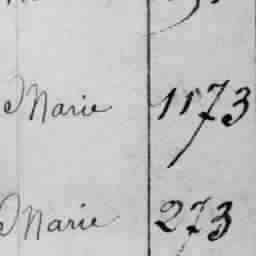 Marie 1173
Marie 273